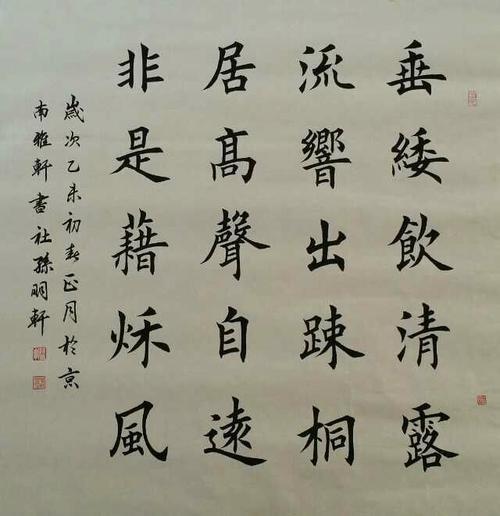 垂緌飲清露
流響出踈桐
居髙聲自遠
非是藉秌風
嵗次乙未初春正月於京
南雅軒書社孫明軒